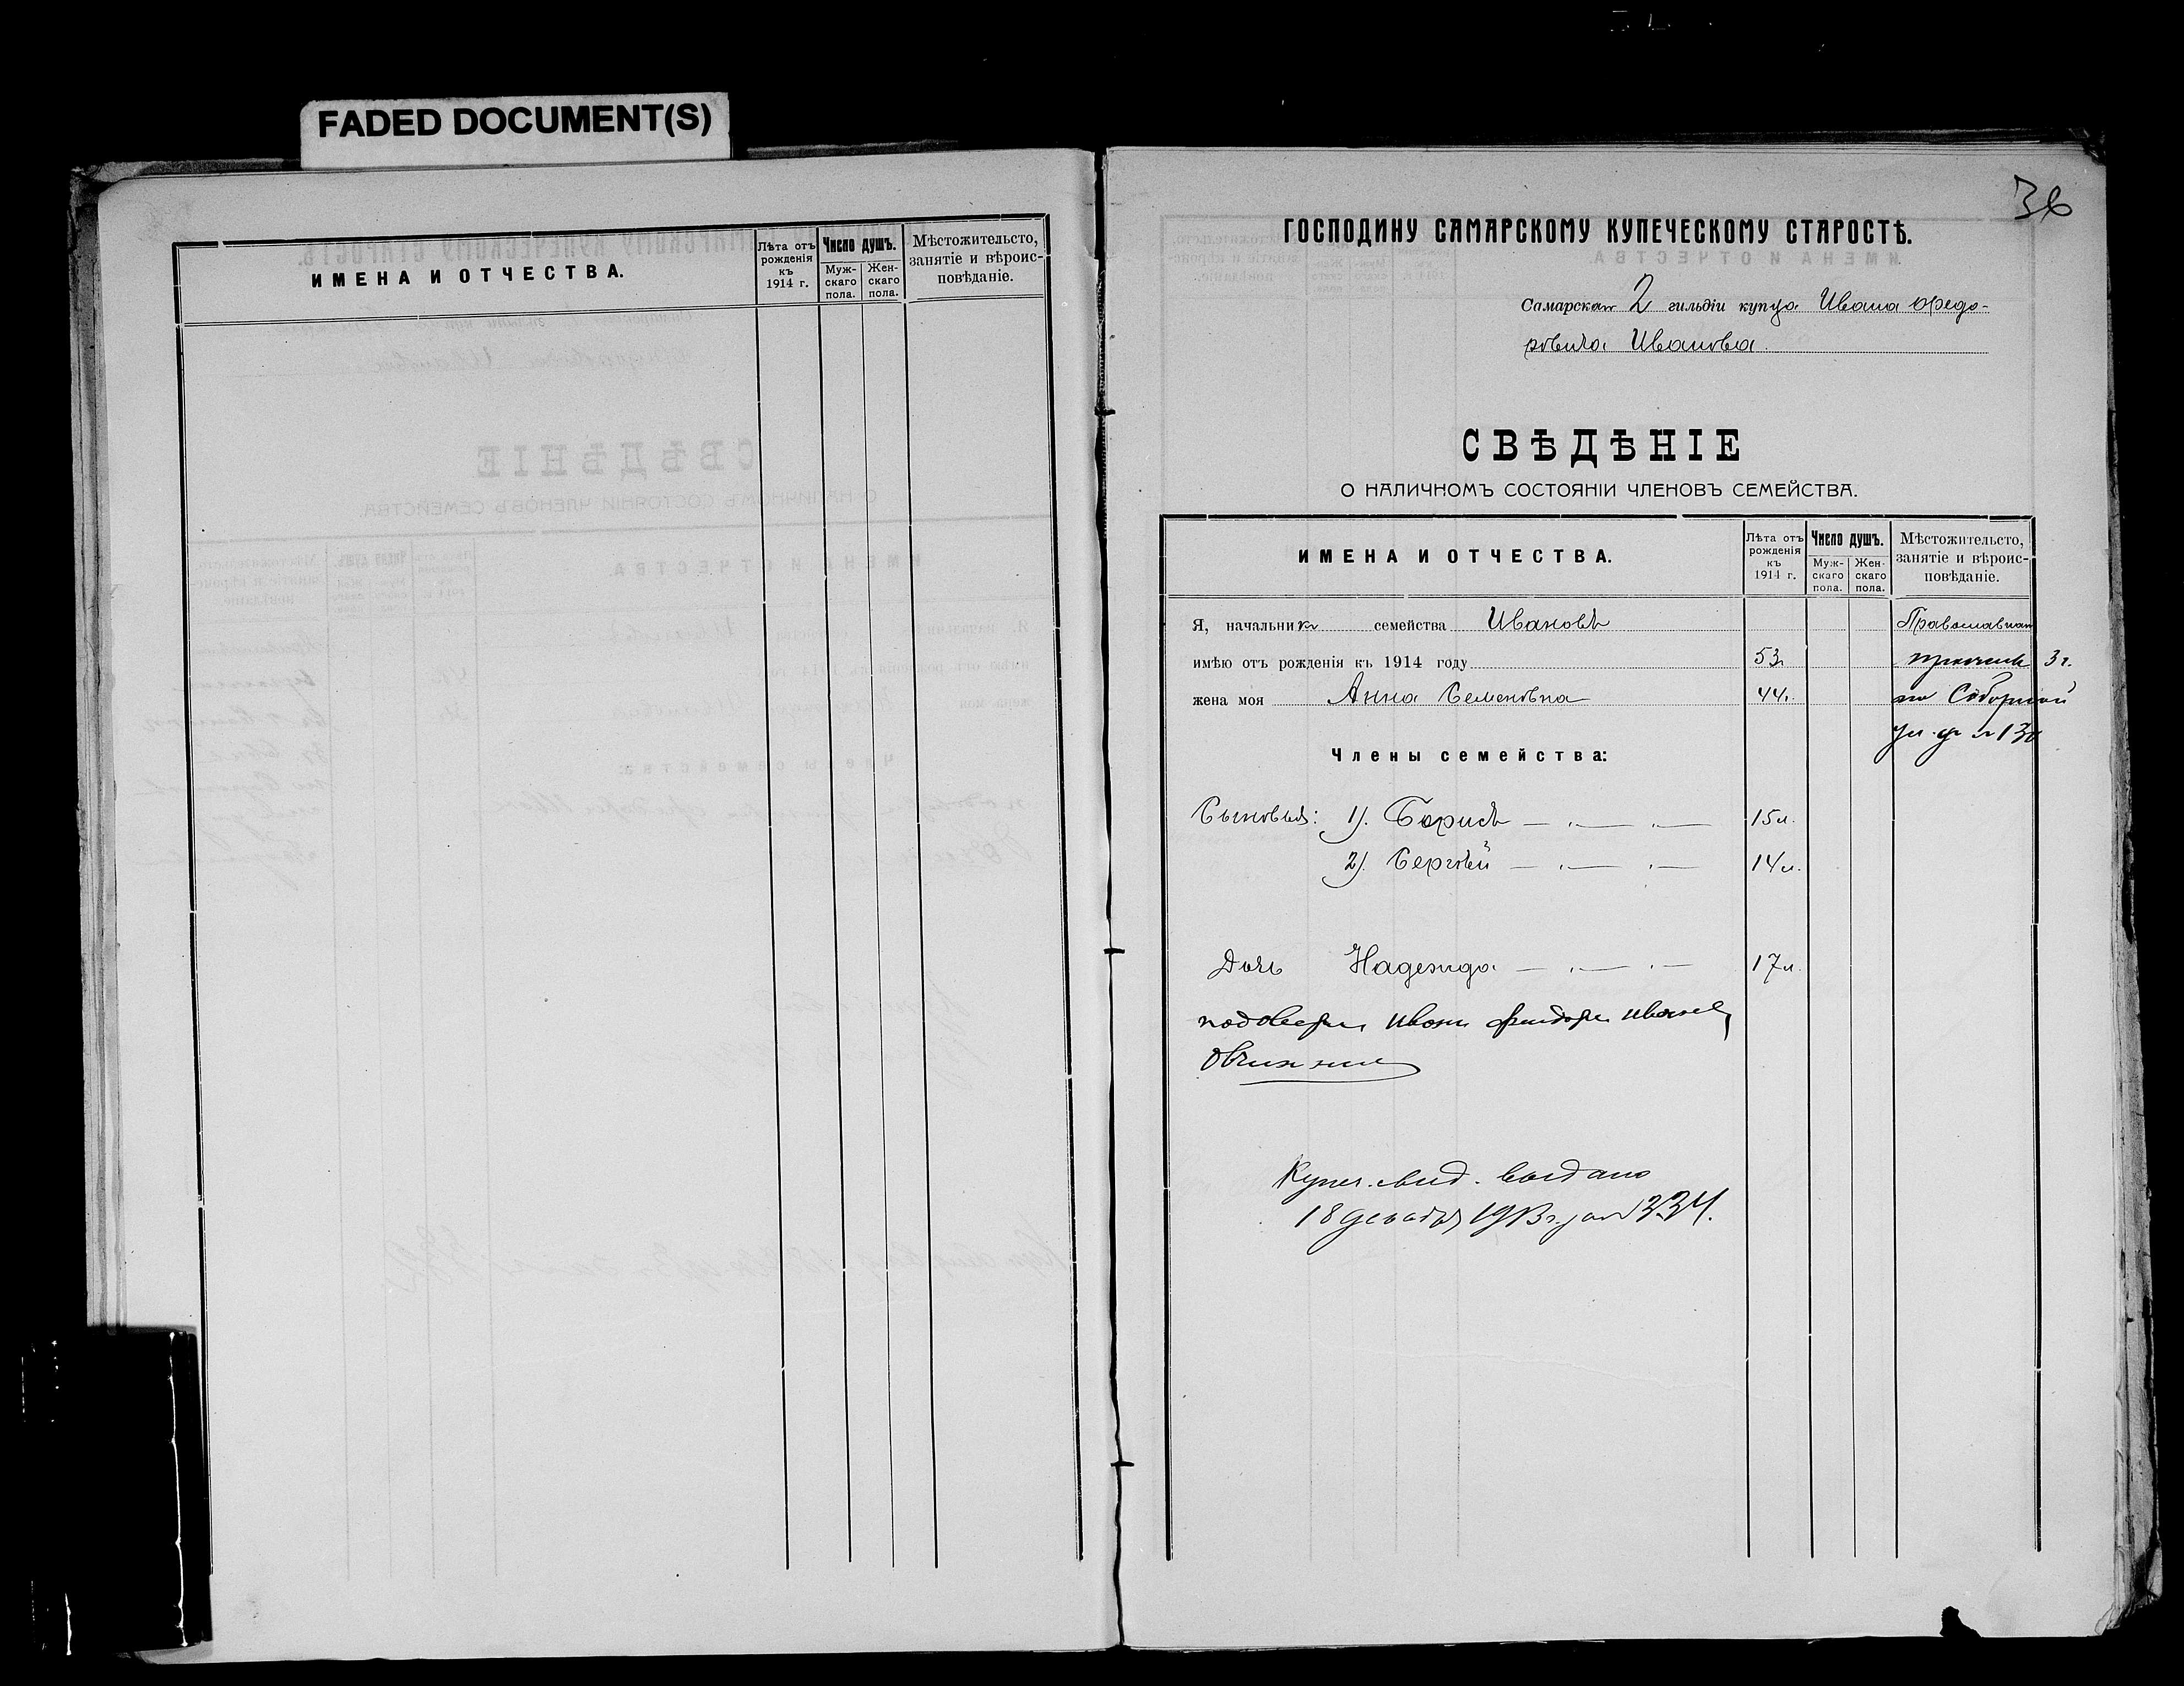 FADED DOCUMENT(S)
ИМЕНА И ОТЧЕСТВА.
Лѣта отъ рожденія къ 1914 г.
Число душъ.
Муж-скаго пола.
Жен-скаго пола.
Мѣстожительсто, занятіе и вѣроис-повѣданіе.
36
ГОСПОДИНУ САМАРСКОМУ КУПЕЧЕСКОМУ СТАРОСТѢ.
Самарскаго 2 гильдіи купца Ивана Ѳедо-
ровича Иванова.
СВѢДѢНІЕ
О НАЛИЧНОМЪ СОСТОЯНІИ ЧЛЕНОВЪ СЕМЕЙСТВА.
ИМЕНА И ОТЧЕСТВА.
Лѣта отъ рожденія къ 1914 г.
Число душъ.
Муж-скаго пола.
Жен-скаго пола.
Мѣстожительсто, занятіе и вѣроис-повѣданіе.
Я, начальникъ семейства Ивановъ Православнаго
имѣю отъ рожденія къ 1914 году 53 3 г.
жена моя Анна Семеновна 44 по Соборной
ул. д №
Члены семейства:
Сыновья: 1). Борисъ — . — . — 15 л.
2). Сергѣй — . — . — 14 л.
Дочь Надежда — . — . — 17 л.
Иванъ Ивановъ
Купеч. свид. выдано
18 декабря 1913 г. за № 334.